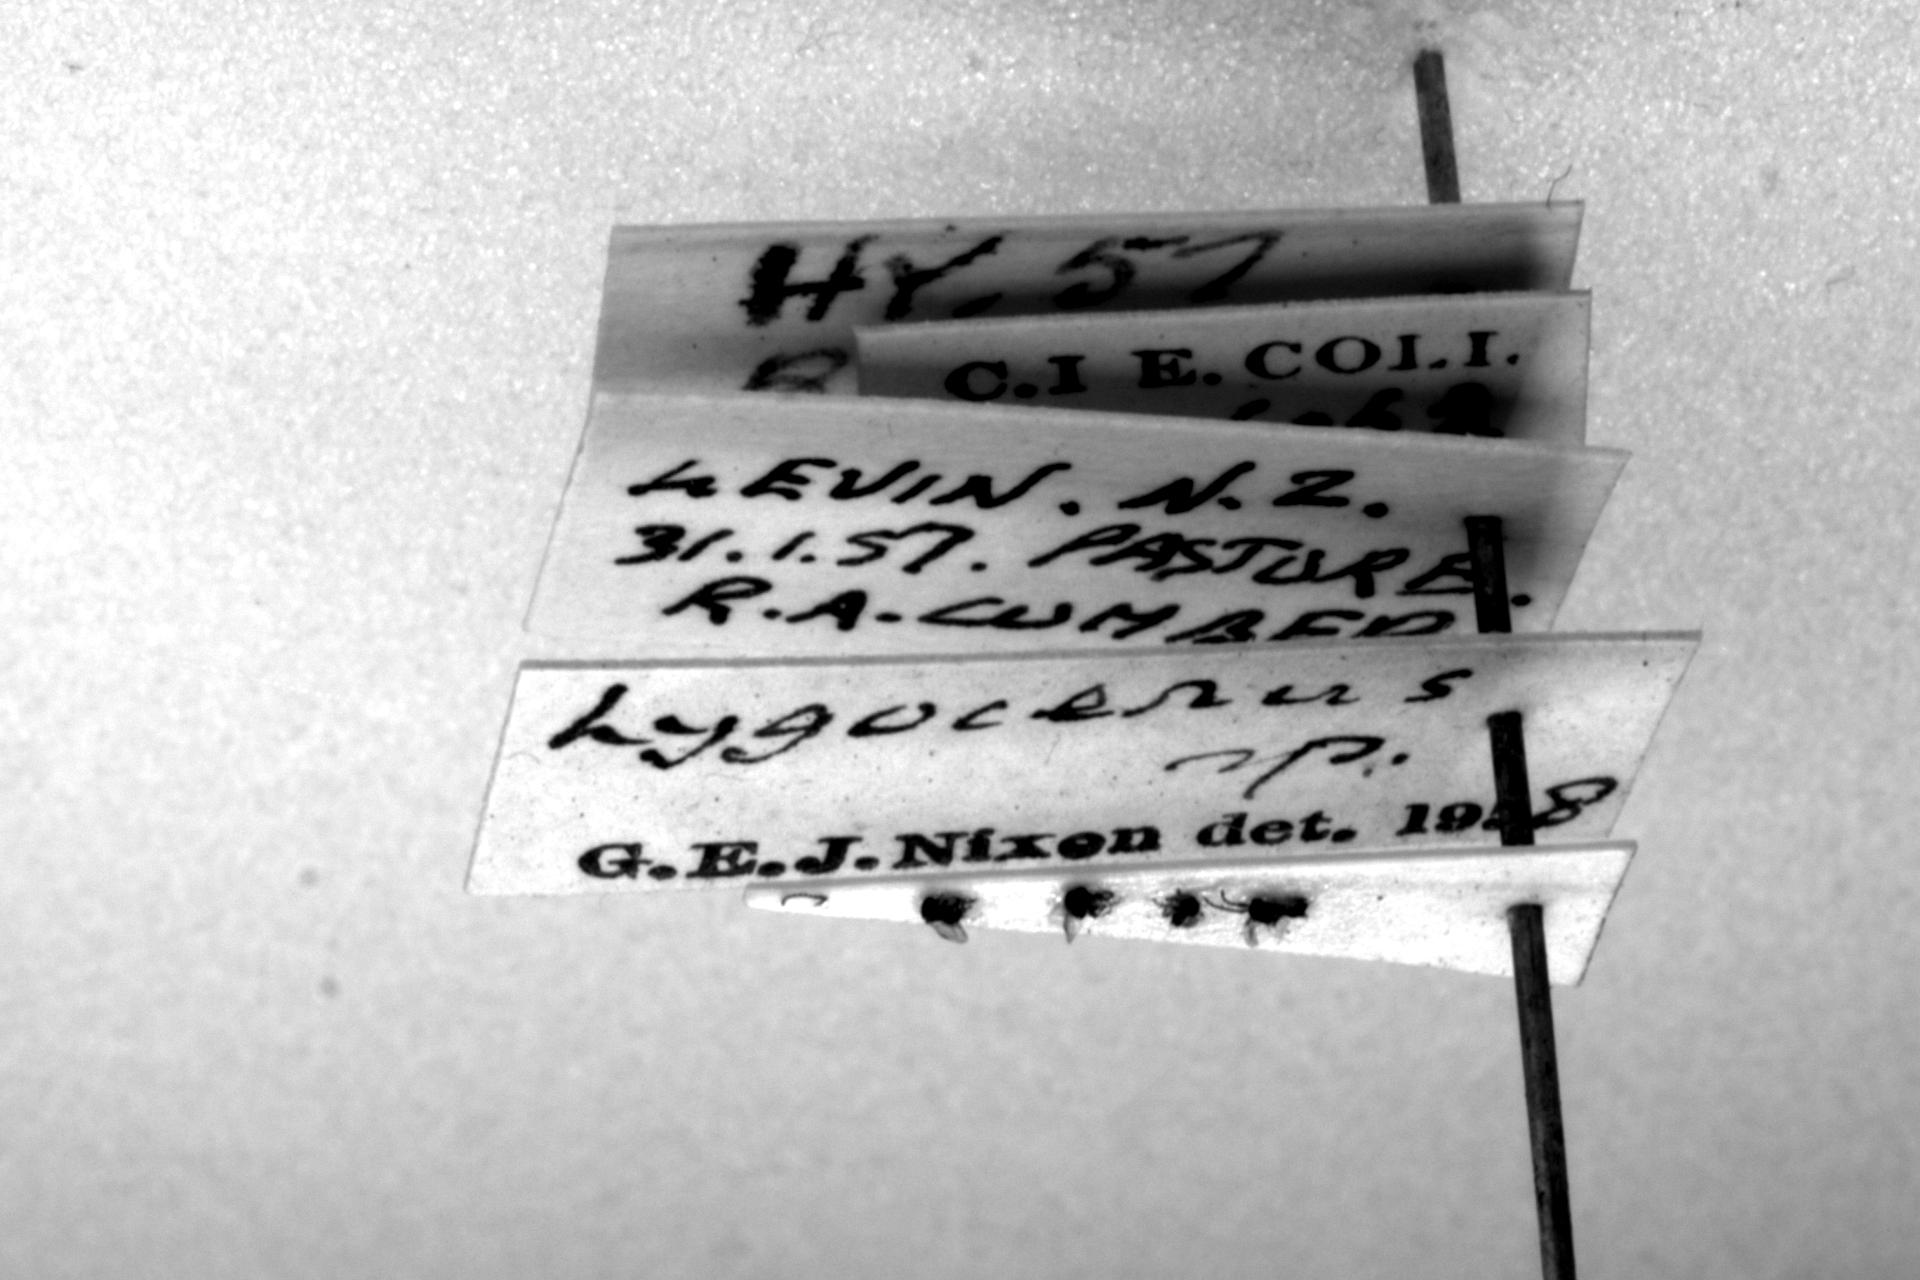 HY. 57
C.I E. COLL.
LEVIN. N.Z.
31.1.57. PASTURE.
R.A. CUMBER
Lygocerus
sp.
G.E.J. Nixon det. 1958